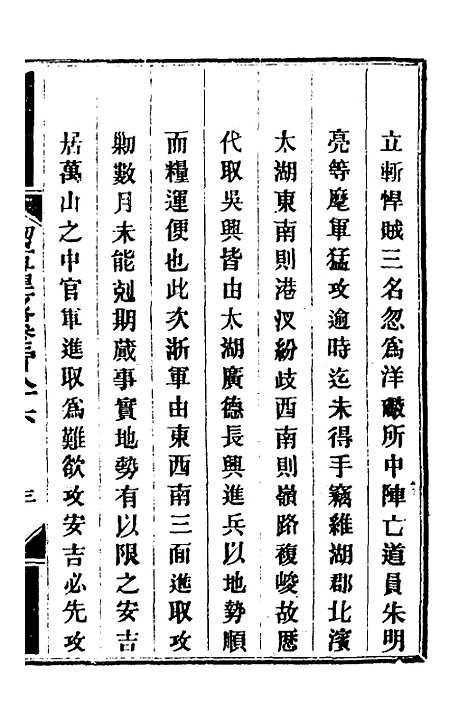 立斬悍賊三名忽為洋礮所中陣亡道員朱明
亮等麾軍猛攻逾時迄未得手竊維湖郡北濱
太湖東南則港汊紛歧西南則嶺路複峻故歷
代取吳興皆由太湖廣德長興進兵以地勢順
而糧運便也此次浙軍由東西南三面進取攻
勦數月未能剋期蕆事實地勢有以限之安吉
居萬山之中官軍進取為難欲攻安吉必先攻
三